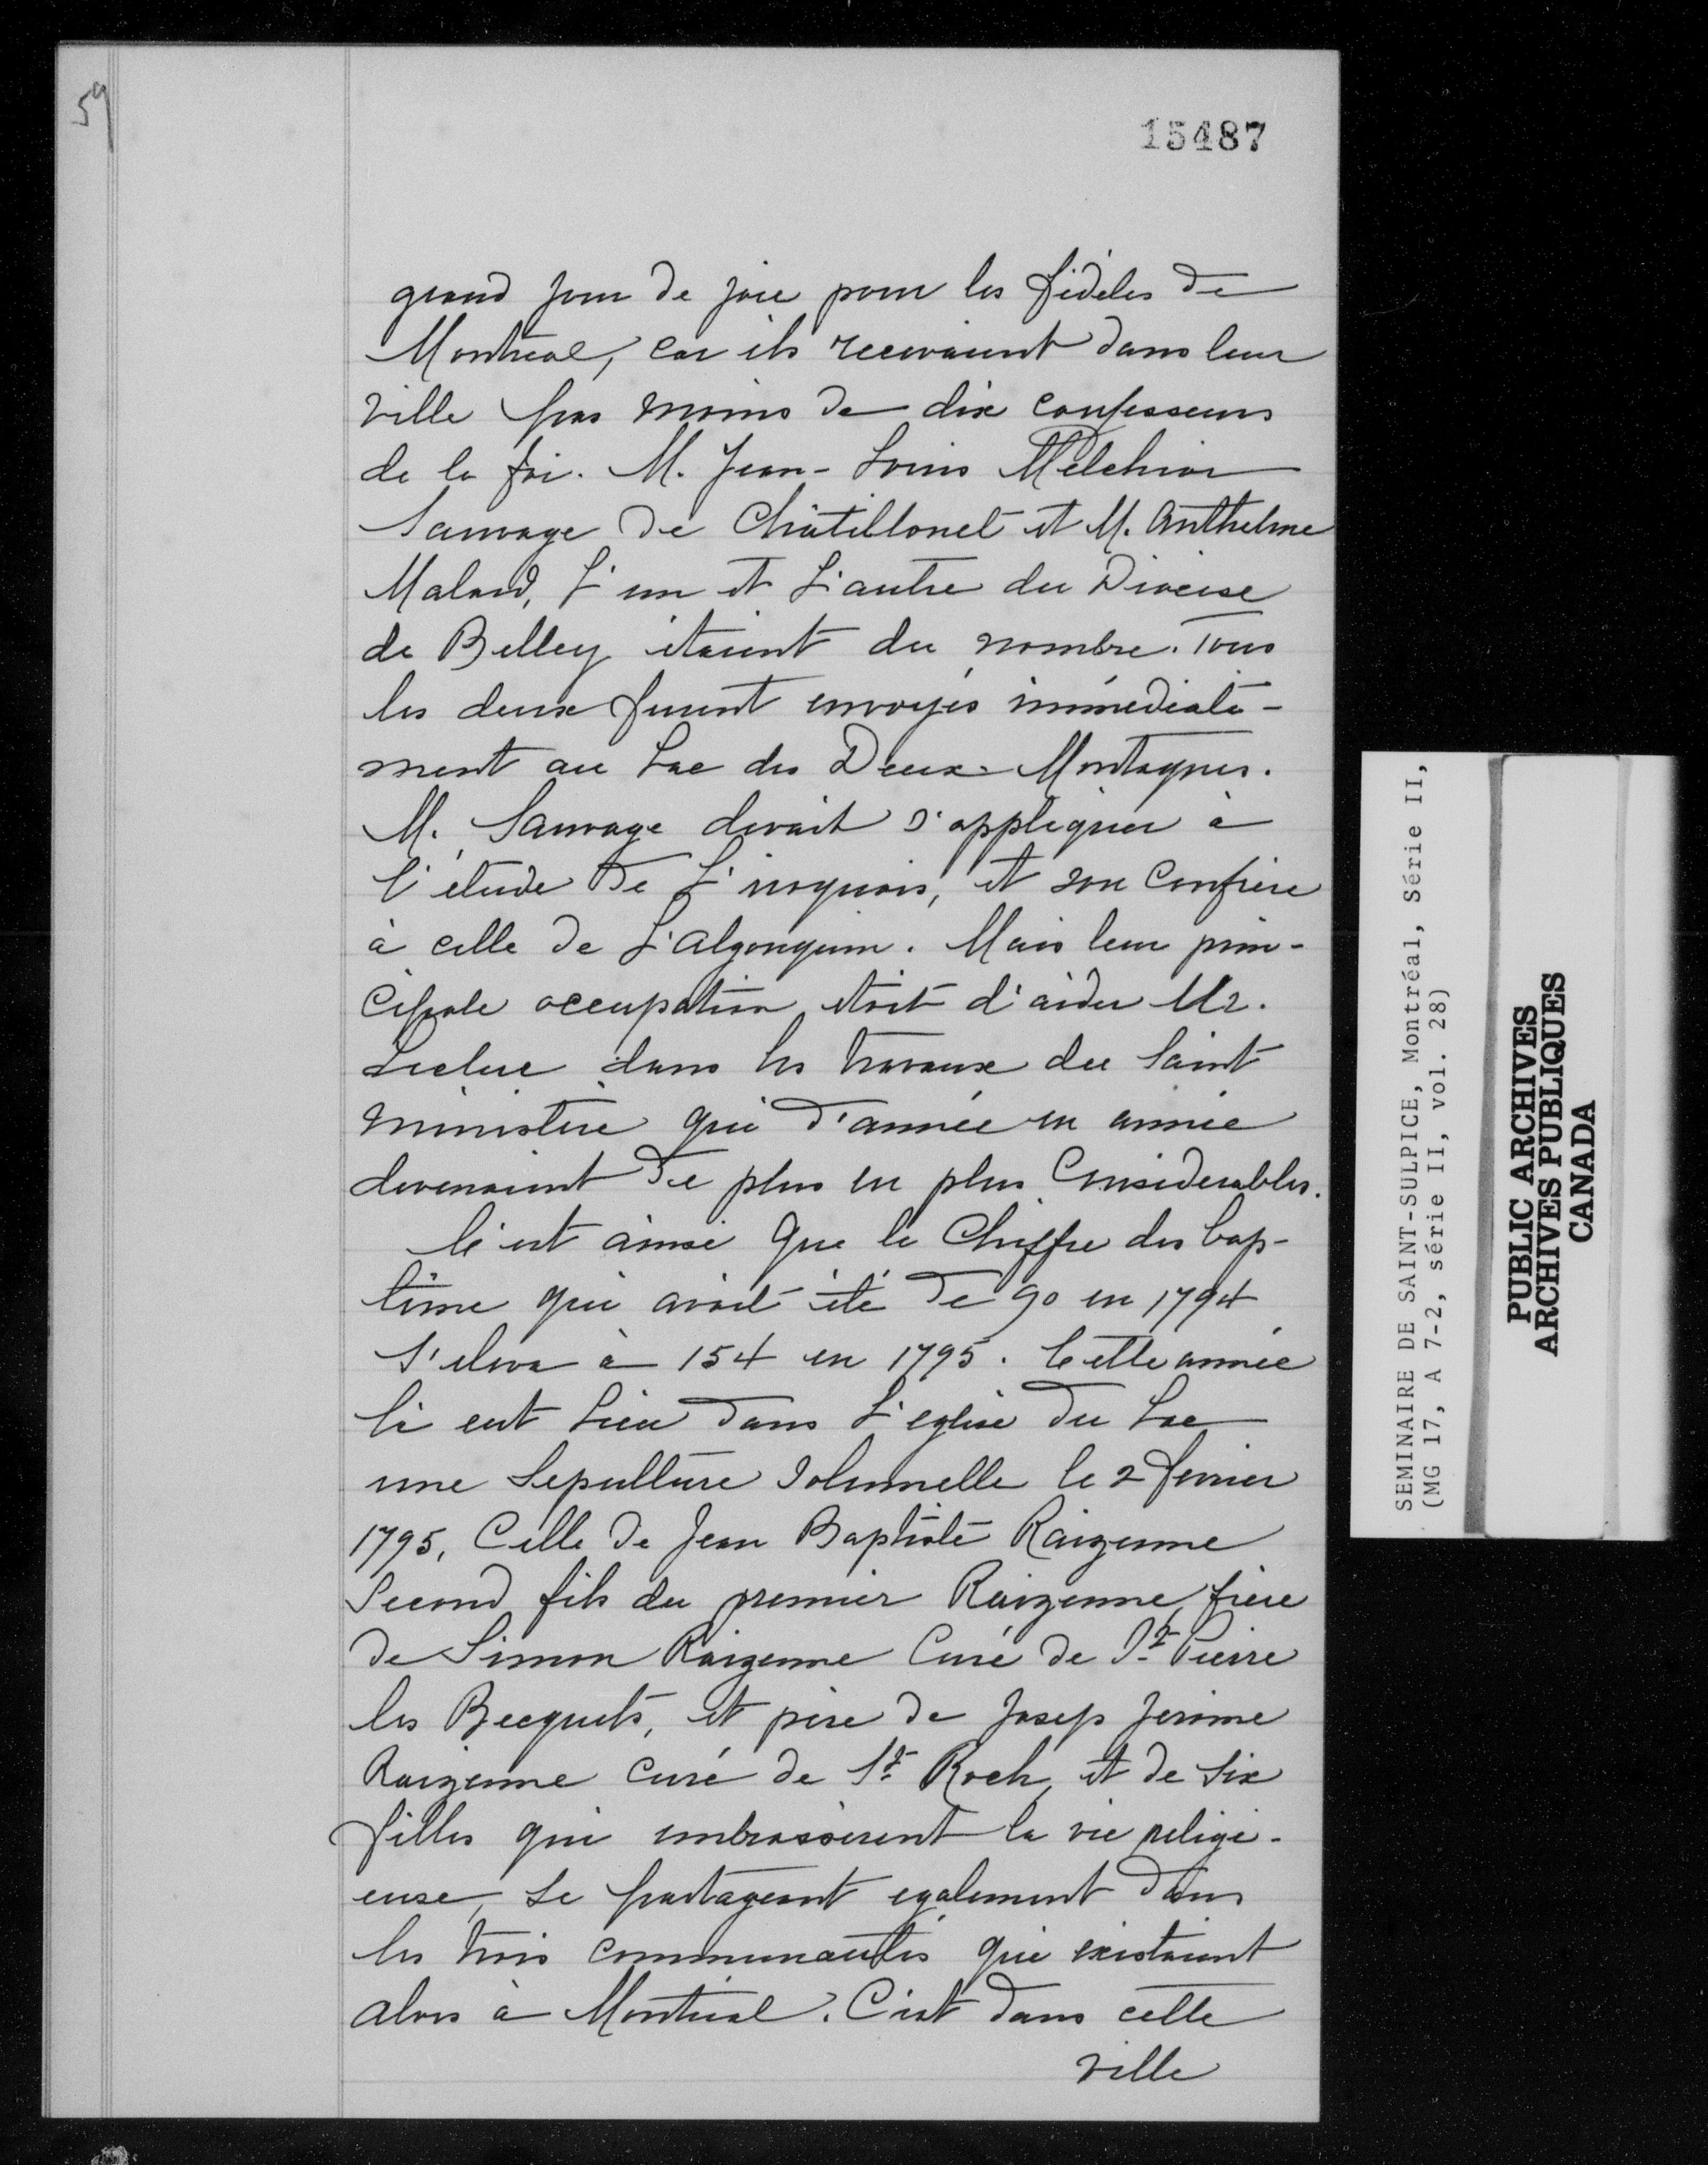 59
15487
grand jour de joie pour les fidèles de
Montréal, car ils recevaient dans leur
ville pas moins de dix confesseurs
de la foi. M. Jean-Louis Melchior
Sauvage de Châtillonet et M. Anthelme
Malard, l'un et l'autre du Diocèse
de Belley étaient du nombre. Tous
les deux furent envoyés immédiate-
ment au Lac des Deux Montagnes.
M. Sauvage devait s'appliquer à
l'étude de l'iroquois, et son confrère
à celle de l'algonquin. Mais leur prin-
cipale occupation était d'aider Mr.
Leclerc dans les travaux du saint
ministère qui d'année en année
devenaient de plus en plus considerables.
C'est ainsi que le chiffre des bap-
tême qui avait été de 90 en 1794
s'eleva à 154 en 1795. Cette année
là eut lieu dans l'eglise du Lac
une sepulture solennelle le 2 fevrier
1795, Celle de Jean Baptiste Raizenne
Second fils du premier Raizenne, frère
de Simon Raizenne Curé de St. Pierre
les Becquets, et père de Josep Jerome
Raizenne curé de St. Roch, et de six
filles qui embrassèrent la vie religi-
euse, se partageant egalement dans
les trois communautés qui existaient
alors à Montréal. C'est dans cette
ville
SEMINAIRE DE SAINT-SULPICE, Montréal, Série II,
(MG 17, A 7-2, série II, vol. 28)
PUBLIC ARCHIVES
ARCHIVES PUBLIQUES
CANADA